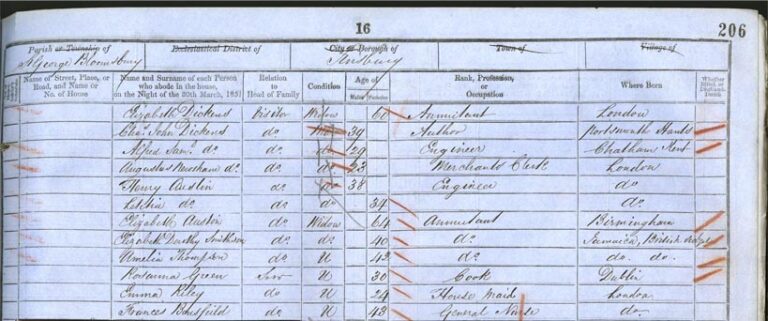 16
206
Parish or Township of Ecclesiastical District of City or Borough of Town of Village of
St George Bloomsbury Finsbury
Name of Street, Place, or Road, and Name or No. of House
Name and Surname of each Person who abode in the house, on the Night of the 30th March, 1851
Relation to Head of Family
Condition
Age of
Males Females
Rank, Profession, or Occupation
Where Born
Whether Blind, or Deaf-and-Dumb
Elizabeth Dickens Visitor Widow 60 Annuitant London
Chas. John Dickens do 39 Author Portsmouth Hants
Alfred Saml. do do do 29 Engineer Chatham Kent
Augustus do do do 23 Merchants Clerk London
Henry Austin do do 38 Engineer do
Letitia do do do 34 do
Elizabeth Austin do Widow 64 Annuitant Birmingham
Elizabeth do do 40 do Jamaica, British
Amelia Thompson do U 42 do do. do.
Rosanna Green Serv U 30 Cook Dublin
Emma Riley do U 24 House Maid London
Frances do U 43 General Nurse do.